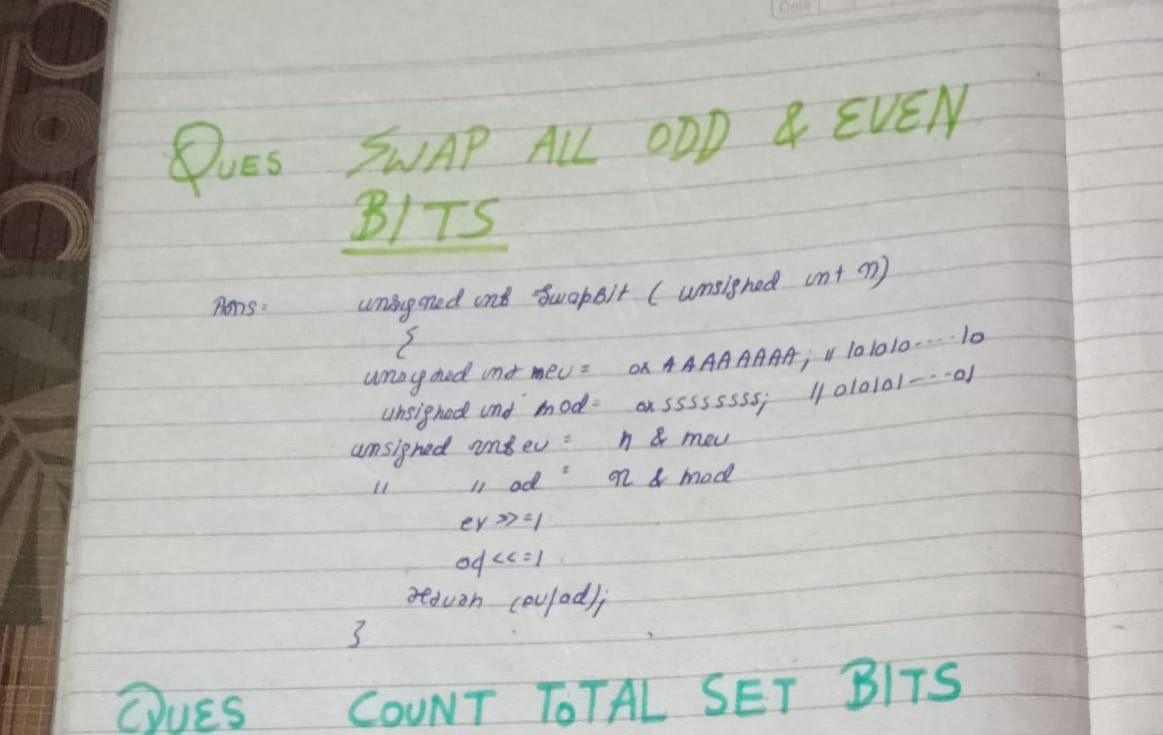 Date
QUES SWAP ALL ODD & EVEN
BITS
Ans: unsigned int SwapBit ( unsigned int n)
{
unsigned int mev = 0x AAAAAAAA; // 101010----10
unsigned int mod = 0x 55555555; // 010101---01
unsigned int ev = n & mev
" " od = n & mod
ev >>=1
od <<=1
return (ev|od);
}
QUES COUNT TOTAL SET BITS